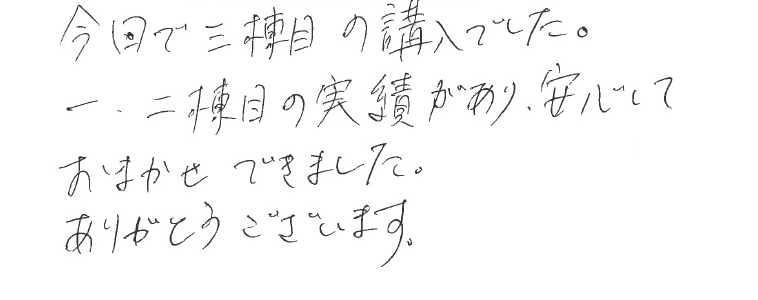 今回で三棟目の講入でした。
一、二棟目の実績があり、安心して
おまかせできました。
ありがとうございます。